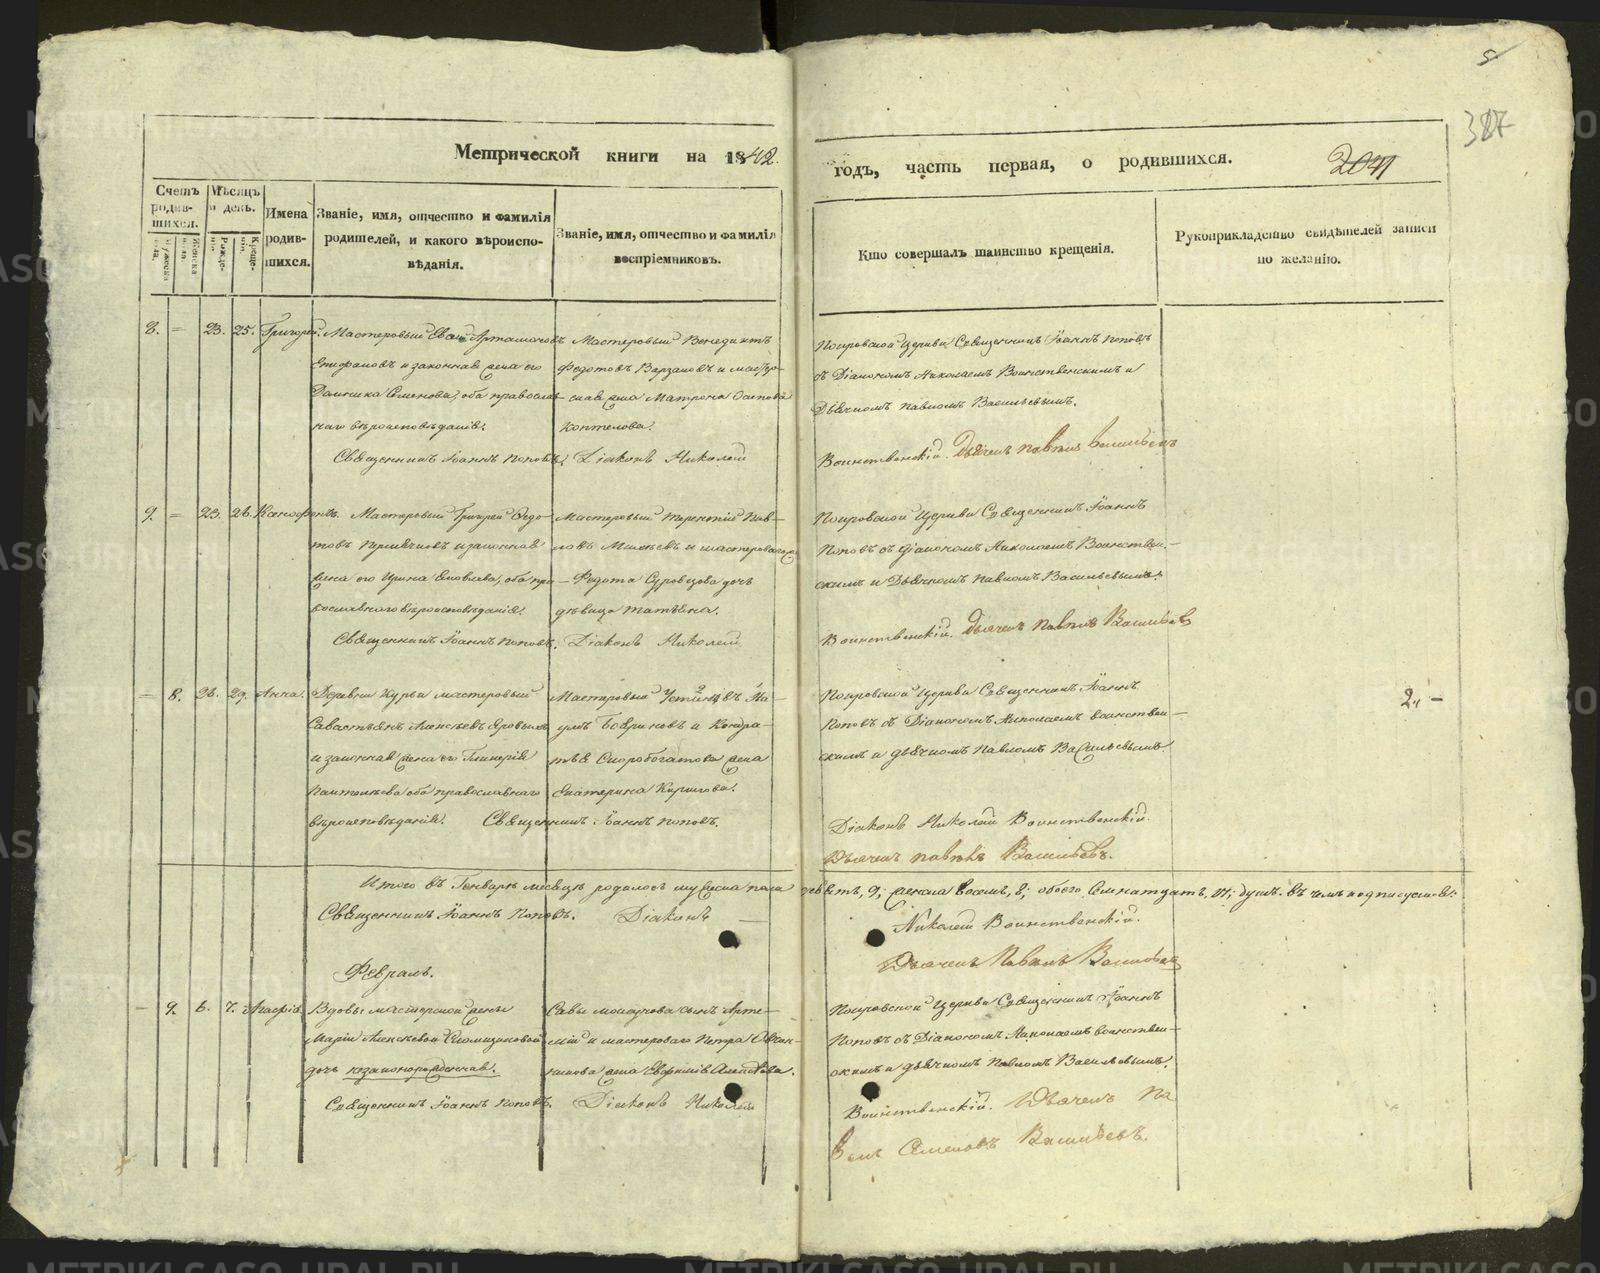 5
387
Метрической книги на 1842. годъ, часть первая, о родившихся.
2041
Счетъ родившихся.
Мѣсяцъ и день.
Имена родившихся.
Званіе, имя, отчество и фамилія родителей, и какого вѣроисповѣданія.
Званіе, имя, отчество и фамилія воспріемниковъ.
Кто совершалъ таинство крещенія.
Рукоприкладство свидѣтелей записи по желанію.
8. — 23. 25. Григорей.
Мастеровый Артамоновъ
Епифановъ и законная жена его
Домника Семенова, оба православ-
наго вѣроисповѣданія.
Мастеровый Венедиктъ
Федотовъ Варзановъ и мастеро-
жена Матрона Осипова
Коптелова.
Священникъ Іоаннъ Поповъ. Діаконъ Николай
Покровской Церкви Священникъ Іоаннъ Поповъ
съ Діакономъ Николаемъ Воинственскимъ и
Дьячкомъ Павломъ Васильевымъ.
Воинственскій. Дьячекъ Павелъ Васильевъ
9. — 23. 26. Ксенофонтъ.
Мастеровый Григорей Федо-
товъ и законная
жена его Ирина Яковлева, оба пра-
вославнаго вѣроисповѣданія.
Мастеровый Терентій Пав-
ловъ и мастероваго
Федота Суровцова дочь
дѣвица Татьяна.
Священникъ Іоаннъ Поповъ. Діаконъ Николай
Покровской Церкви Священникъ Іоаннъ
Поповъ съ Діакономъ Николаемъ Воинствен-
скимъ и Дьячкомъ Павломъ Васильевымъ.
Воинственскій. Дьячекъ Павелъ Васильевъ
— 8. 26. 29. Анна.
Деревни Курьи мастеровый
Савастьянъ Алексѣевъ
и законная жена его Гликерія
Пантелѣева оба православнаго
вѣроисповѣданія.
Мастеровый Устиновъ На-
умъ Бобриковъ и Кондра-
тья Скоробогатова жена
Екатерина Кирилова.
Священникъ Іоаннъ Поповъ.
Покровской Церкви Священникъ Іоаннъ
Поповъ съ Діакономъ Николаемъ Воинствен-
скимъ и дьячкомъ Павломъ Васильевымъ.
2,, —
Діаконъ Николай Воинственскій.
Дьячекъ Павелъ Васильевъ.
Итого въ Генварѣ мѣсяцѣ родилось мужеска пола девять, 9; женска восемь, 8; обоего семнатцать, 17; душъ. въ чемъ и подписуемся:
Священникъ Іоаннъ Поповъ. Діаконъ — Николай Воинственскій.
Дьячекъ Павелъ Васильевъ
Февраль.
— 9. 6. 7. Агафія.
Вдовы мастерской жены
Маріи Алексѣевой
дочь незаконорожденная.
Савы сынъ Арте-
мій и мастероваго Петра
жена Евфимія
Священникъ Іоаннъ Поповъ. Діаконъ Николай
Покровской Церкви Священникъ Іоаннъ
Поповъ съ Діакономъ Николаемъ Воинствен-
скимъ и дьячкомъ Павломъ Васильевымъ.
Воинственскій. Дьячекъ Па
велъ Семеновъ Васильевъ.
METRIKI.GASO-URAL.RU